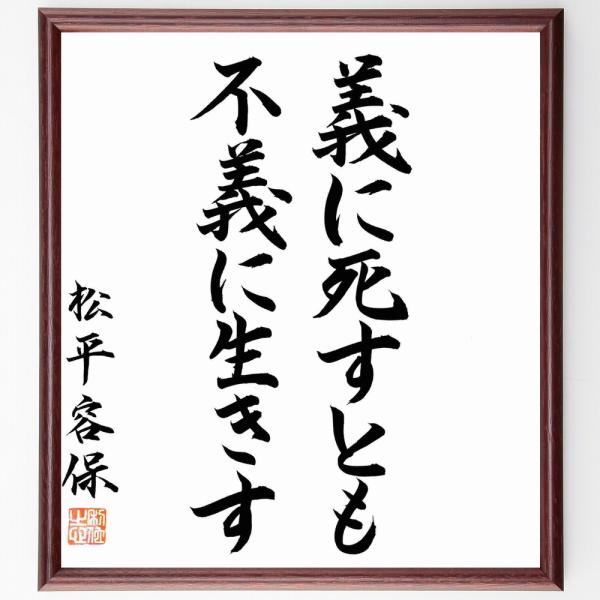 義に死すとも
不義に生きす
松平容保